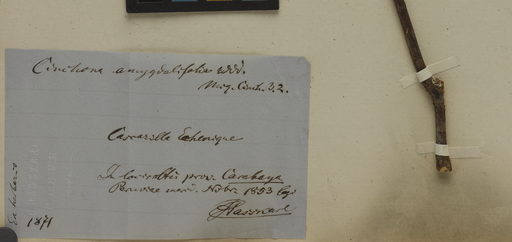 Cinchona amygdalifolia Wdd.
Mig. Cinch. 3.2.
Cascarilla Echenique
In convallibus prov. Carabaya
Peruviae merid. Nobr. 1853 legi
JHasskarl
Ex herbario
1871